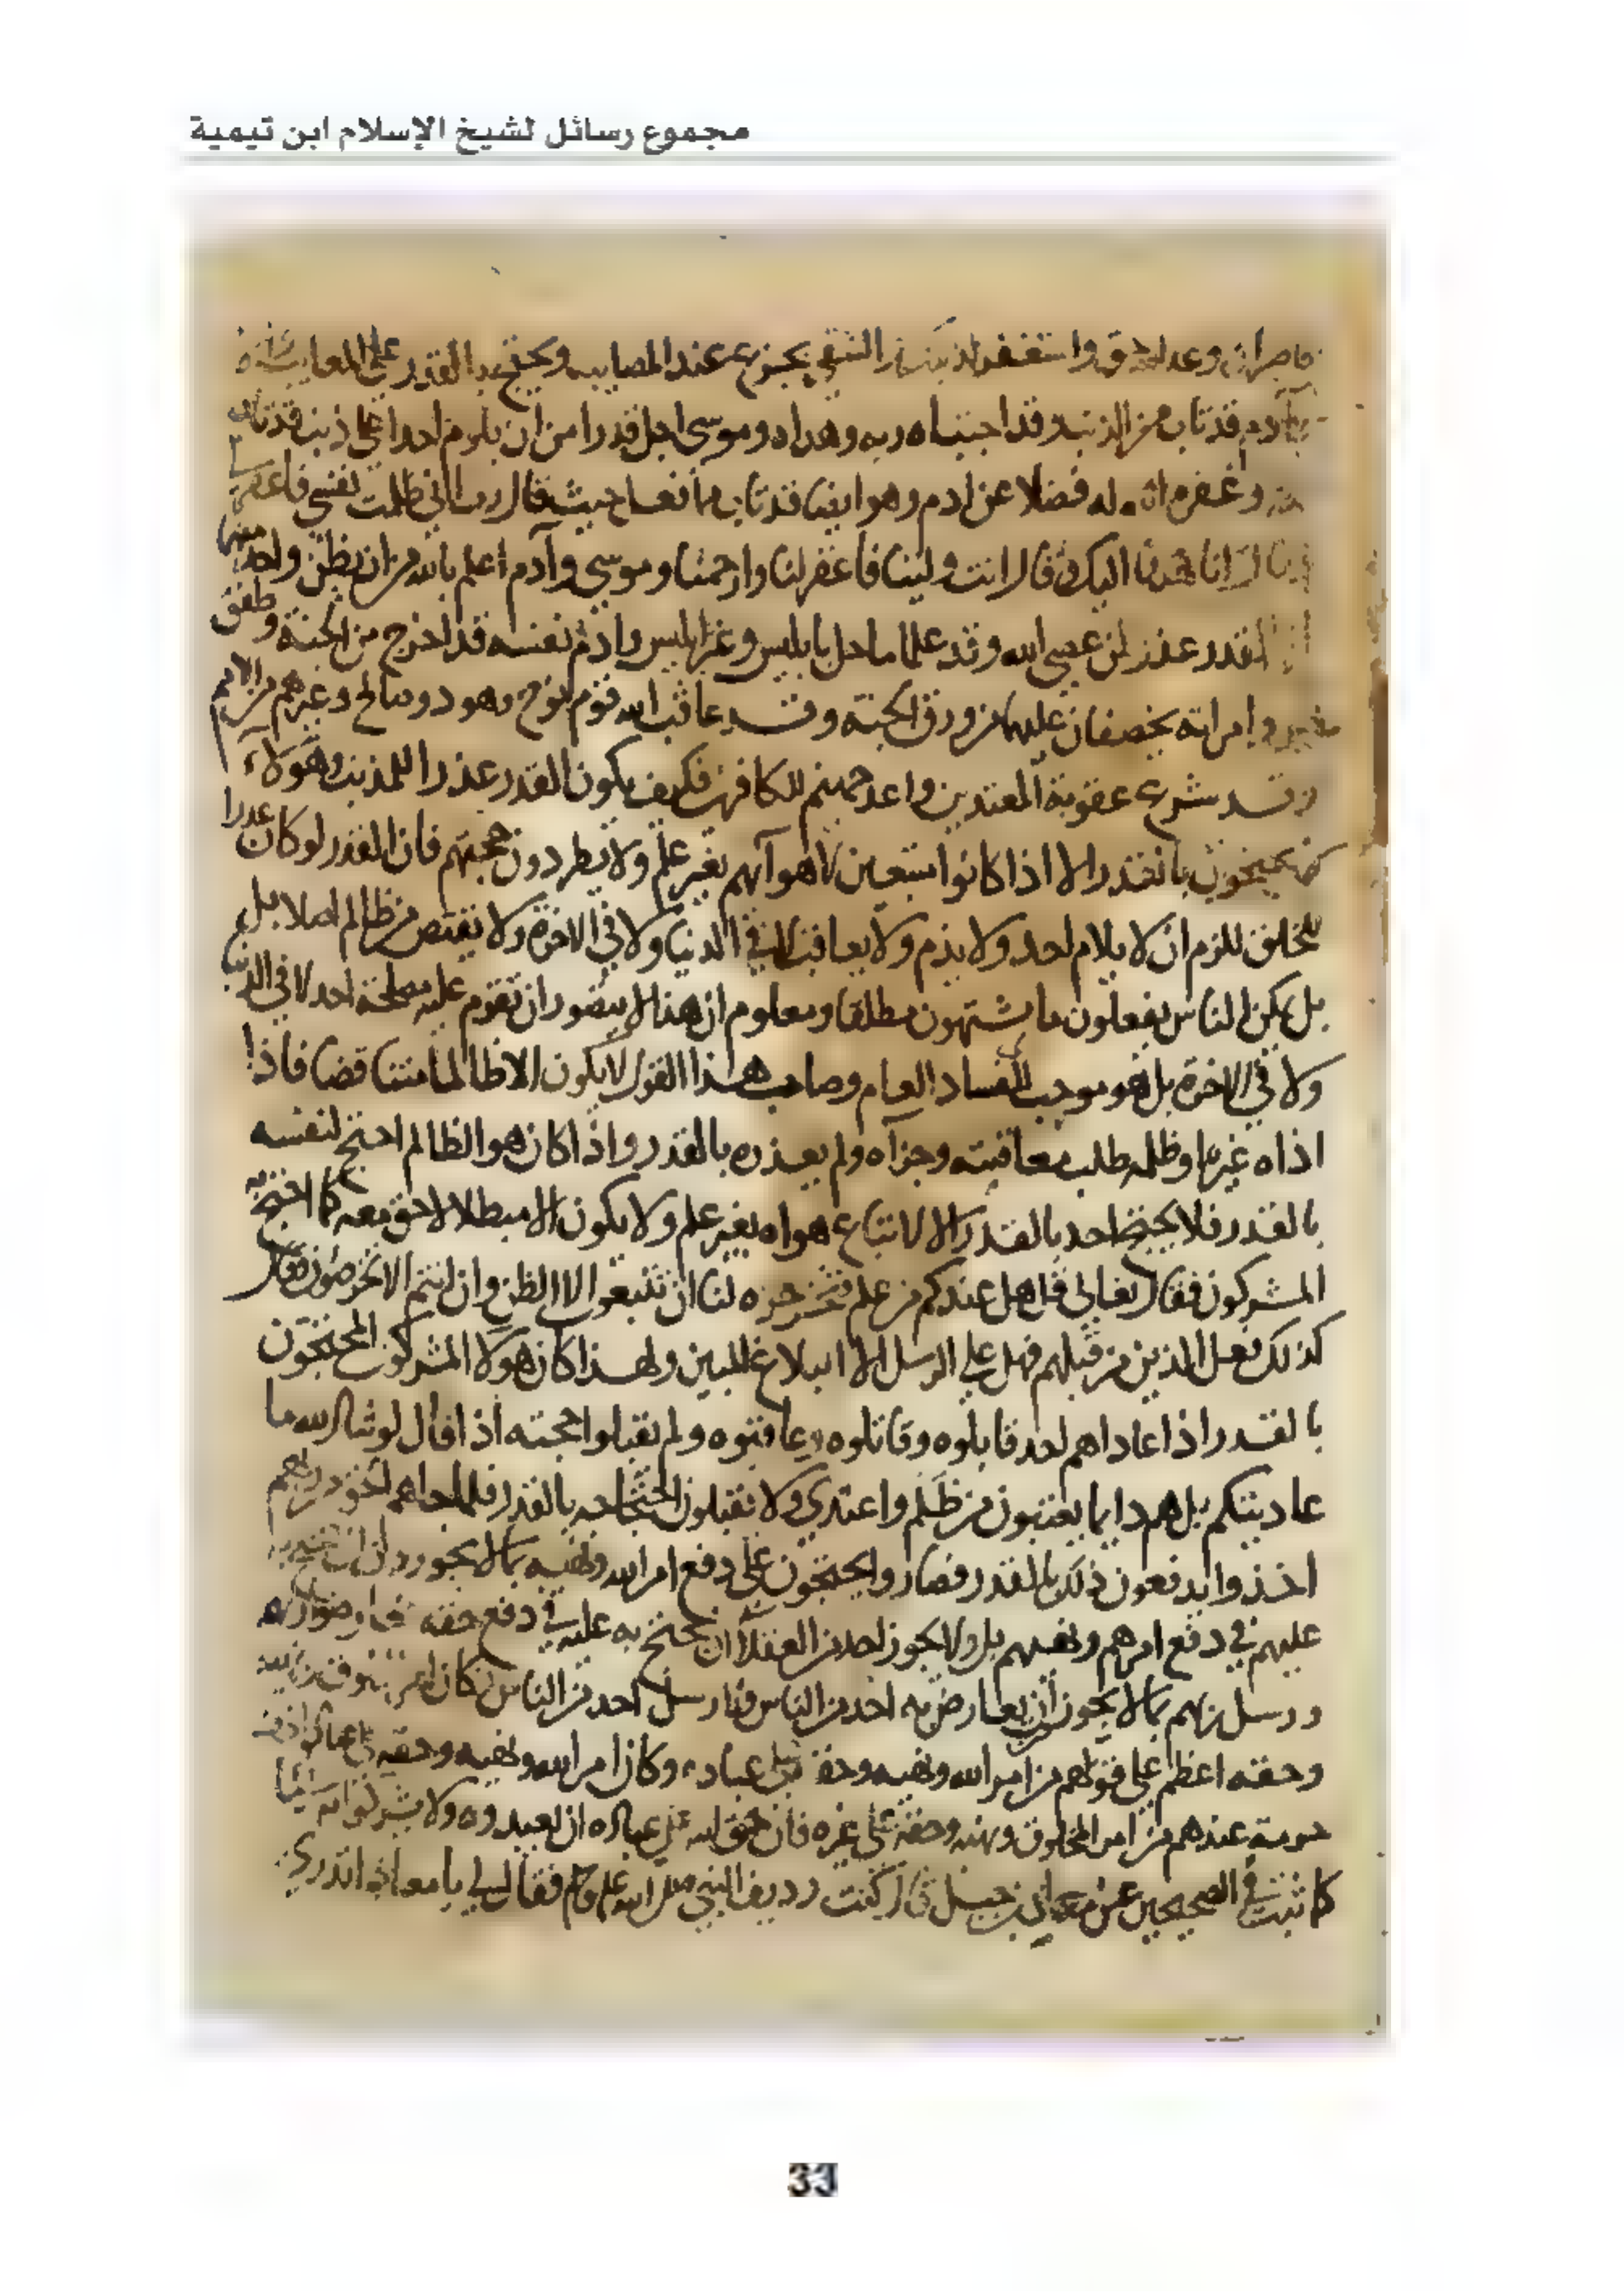 مجموع رسائل لشيخ الإسلام ابن تيمية
فاصبر ان وعد الله حق واستغفر لذنبك والشقي يجزع عند المصايب ويحتج بالقدر على المعايب
آدم قد تاب من الذنب وقد اجتباه ربه وهداه وموسى اجل قدرا من ان يلوم احدا على ذنب قد تاب
منه وغفره الله له فضلا عن ادم وهو ايضا قد تاب مما فعل حيث قال رب اني ظلمت نفسي فاغفر لي
انا هدنا اليك وقال انت ولينا فاغفر لنا وارحمنا وموسى وآدم اعلم بالله من ان يظن واحد منهما
القدر عذر لمن عصى الله وقد علما ما حل بابليس وغير ابليس وادم نفسه قد اخرج من الجنة وطفق
وامراته يخصفان عليهما من ورق الجنة وقد عاقب الله قوم نوح وهود وصالح وغيرهم من الامم
وقد شرع عقوبة المعتدين واعد جهنم للكافرين فكيف يكون القدر عذرا للمذنب وهولاء
يحتجون بالقدر الا اذا كانوا متبعين لاهوآئهم بغير علم ولا يطردون حجتهم فان القدر لو كان عذرا
للخلق للزم ان لا يلام احد ولا يذم ولا يعاقب لا في الدنيا ولا في الاخرة ولا يقتص من ظالم اصلا بل
بل يمكن الناس يفعلون ما يشتهون مطلقا ومعلوم ان هذا لا يتصور ان تقوم عليه مصلحة احد لا في الدنيا
ولا في الاخرة بل هو موجب للفساد العام وصاحب هذا القول لا يكون الا ظالما متناقضا فاذا
اذاه غيره او ظلمه طلب معاقبته وجزآه ولم يعذره بالقدر واذا كان هو الظالم احتج لنفسه
بالقدر فلا يحتج احد بالقدر الا لاتباع هواه بغير علم ولا يكون الا مبطلا لا حق معه كما احتج به
المشركون فقال تعالى قل هل عندكم من علم فتخرجوه لنا ان تتبعون الا الظن وان انتم الا تخرصون وقال
كذلك فعل الذين من قبلهم فهل على الرسل الا البلاغ المبين ولهذا كان هولا المشركون المحتجون
بالقدر اذا عاداهم احد قابلوه وقاتلوه وعاقبوه ولم يقبلوا حجته اذا قال لو شاء الله ما
عاديتكم بل هم دايما يعيبون من ظلم واعتدي ولا يقبلون احتجاجه بالقدر فلما جاهم الحق من ربهم
اخذوا يدفعون ذلك بالقدر فصاروا يحتجون على دفع امر الله ونهيه بما لا يجوزون ان يحتج به
عليهم في دفع امرهم ونهيهم بل ولا يجوز احد من العقلآ ان يحتج به عليه في دفع حقه
ورسل ربهم بما لا يجوز ان يعارض به احد من الناس ولا رسل احد من الناس فكان
وحقه اعظم على قولهم من امر الله ونهيه وحقه على عباده وكان امر الله ونهيه وحقه على عباده اخف
حرمة عندهم من امر المخلوق ونهيه وحقه على غيره فان حق الله على عباده ان يعبدوه ولا يشركوا به شيئا
كما ثبت في الصحيحين عن معاذ بن جبل قال كنت رديف النبي صلى الله عليه وسلم فقال لي يا معاذ اتدري
33